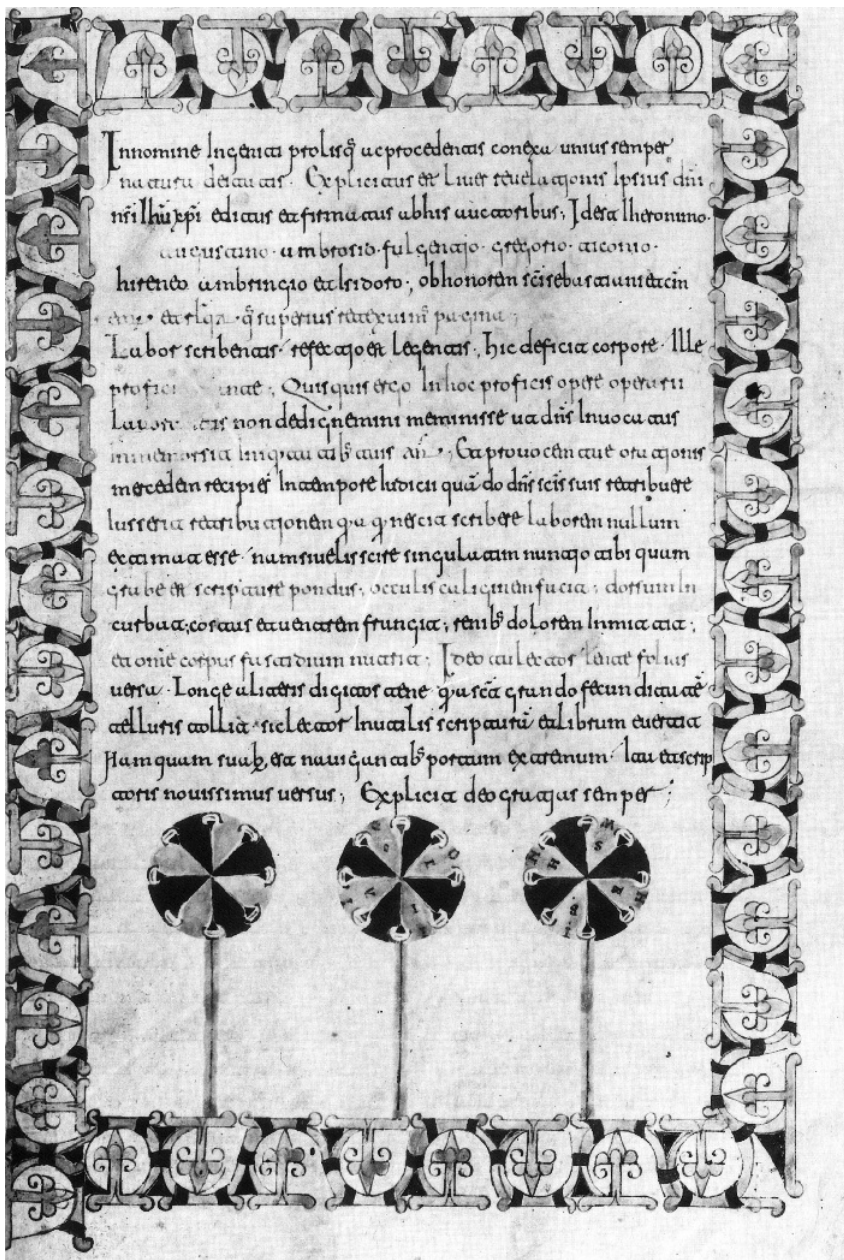 Innomine Ingeniti prolisq; ac procedentis conexa unius senper
natura deitatis · Explicitus est liuer reuelationis Ipsius dni
nsi ihu xpi editus et firmatus abhis auctoribus; Idest iheronimo ·
augustino · ambrosio · fulgentio · gregorio · ticonio ·
hireneo ambringio et Isidoro; obhonoren sci sebastiani etcm
et rlqa · q superius retexuim pagina;
Labor scribentis refectio est legentis, hic deficit corpore · Ille
Quisquis ergo Inhoc proficis opere operarii
non dedignemini meminisse ut dns Inuocatus
tuis am; Et prouocen tue orationis
merceden recipies Intempore Iudicii quando dns scis suis retribuere
Iusserit retributionen qa q nescit scribere laboren nullum
extimat esse · nam si uelis scire singulatim nuntio tibi quam
grabe est scripture pondus; occulis caliginen facit; dorsum In
curbat; costas et uentren frangit; renib; doloren inmittit;
et omne corpus fastidium nutrit; Ideo tu lector lente folias
uersa · Longe a literis digitos tene · qa sict grando fecunditate
telluris tollit · sic lector Inutilis scriptura et librum euertit
Nam quam suabe est nauigantib; portum extremum · Ita et scrip
toris nouissimus uersus; Explicit deo gratias senper;